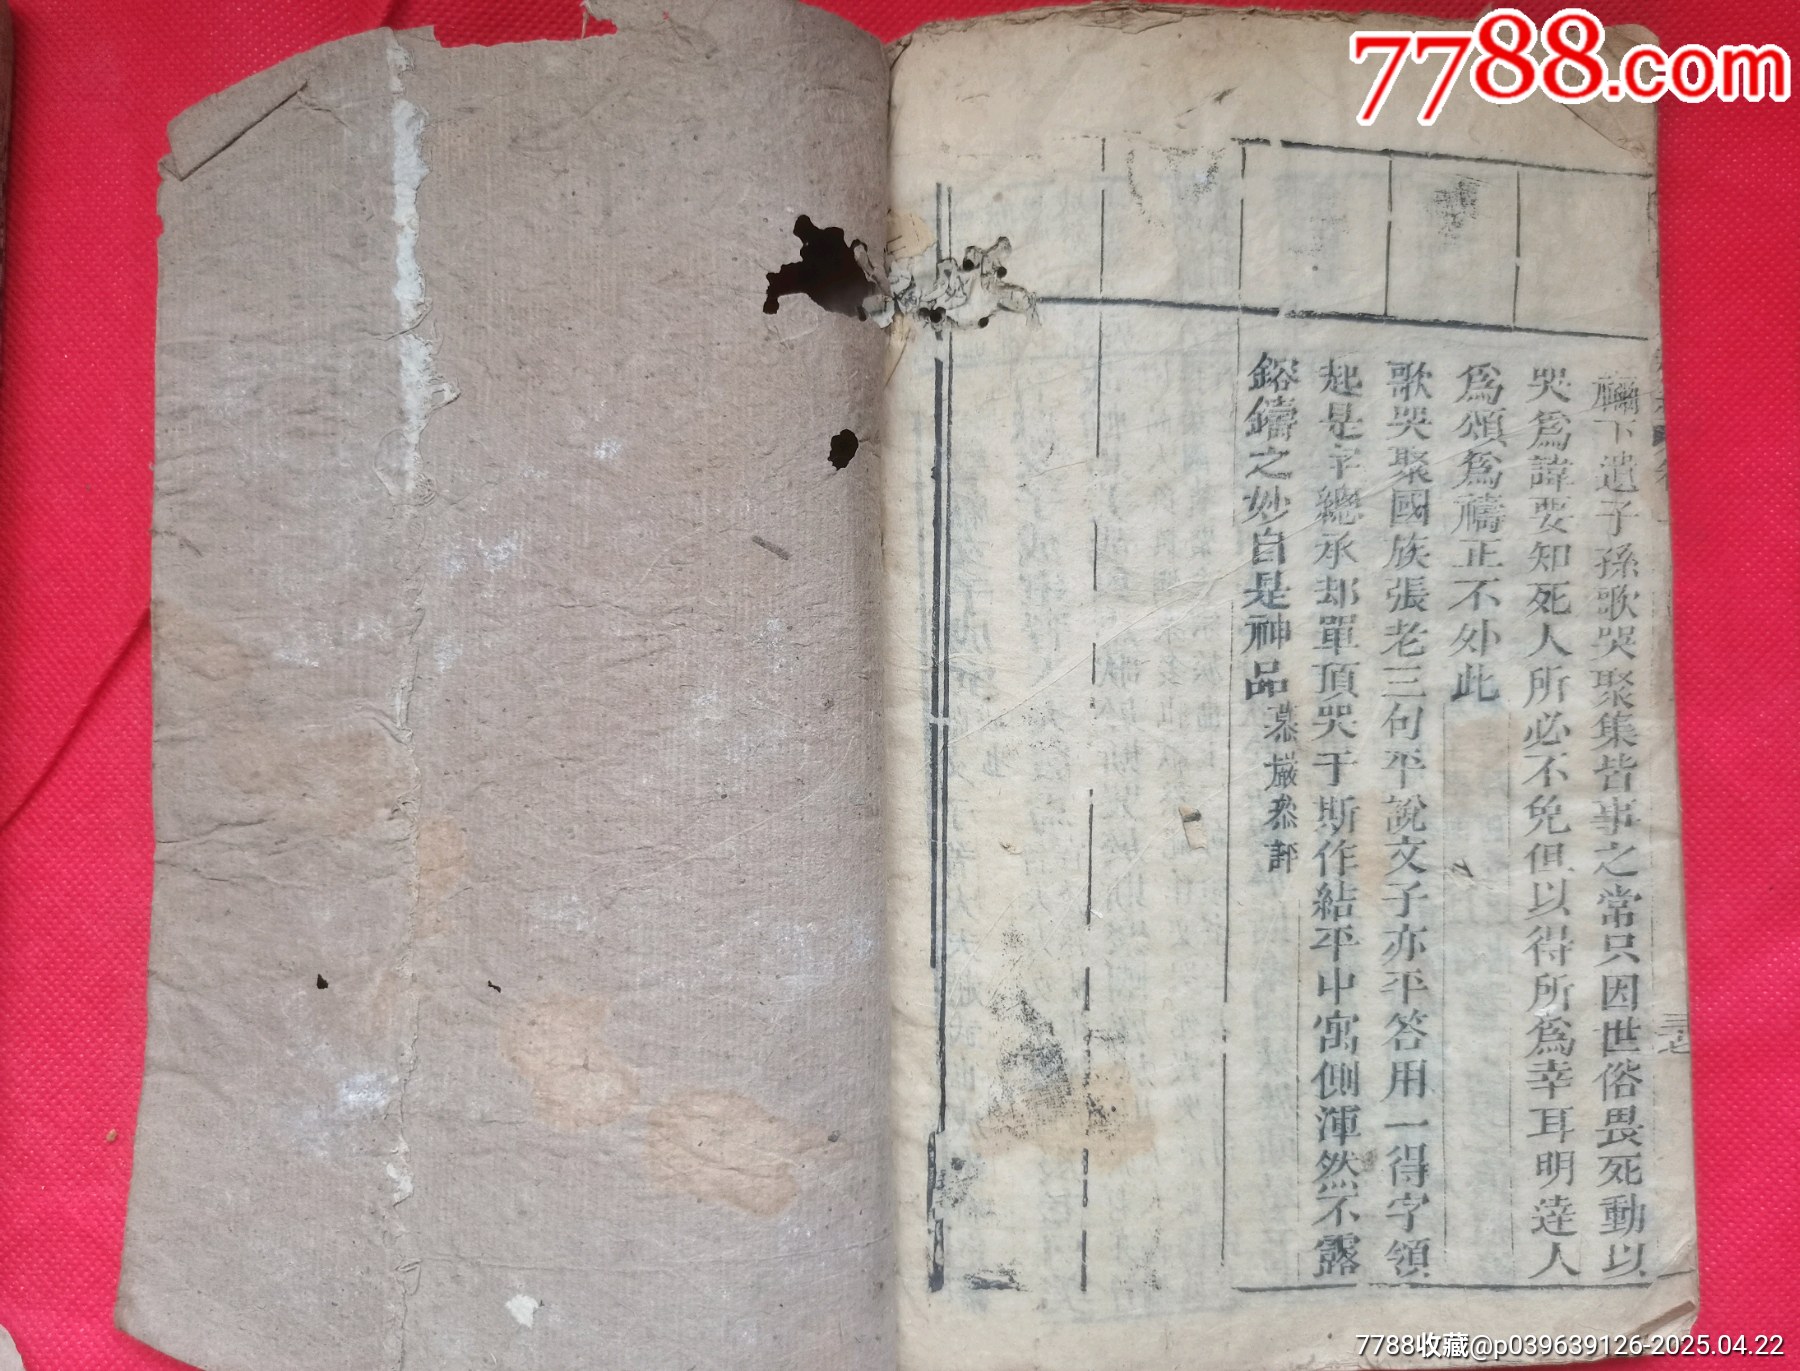 7788.com
下遺子孫歌哭聚集皆事之常只因世俗畏死動以
哭爲諱要知死人所必不免但以得所爲幸耳明達人
爲頌爲禱正不外此
歌哭聚國族張老三句平說文子亦平答用一得字領
起是字總承却單頂哭于斯作結平中寓側渾然不露
鎔鑄之妙自是神品慕巖叅評
三七
7788收藏@p039639126-2025.04.22